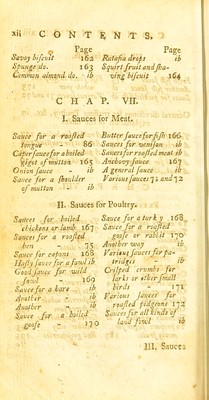 xii CONTENTS.
Page
Savoy biscuit 162
Spunge do. 163
Common almond do. ib
Page
Ratafia drops ib
Squirt fruit and sha-
ving biscuit 164
CHAP. VII.
I. Sauces for Meat.
Sauce for a roasted
tongue - 86
Caper sauce for a boiled
gigot of mutton 165
Onion sauce ib
Sauce for a shoulder
of mutton - ib
Butter sauce for fish 166
Sauces for venison ib
Sauces for roasted meat ib
Anchovy sauce 167
A general sauce ib
Various sauces 71 and 72
II. Sauces for Poultry.
Sauces for boiled
chickens or lamb 167
Sauces for a roasted
hen - 75
Sauce for capons 168
Hasty sauce for a fowl ib
Good sauce for wild
fowl 169
Sauce for a hare - ib
Another - ib
Another ib
Sauce for a boiled
goose - 170
Sauce for a turky 168
Sauce for a roasted
goose or rabbit 170
Another way ib
Various sauces for pa-
tridges - ib
Crisped crumbs for
larks or other small
birds - 171
Various sauces for
roasted pidgeons 172
Sauces for all kinds of
land fowl ib
III. Sauces